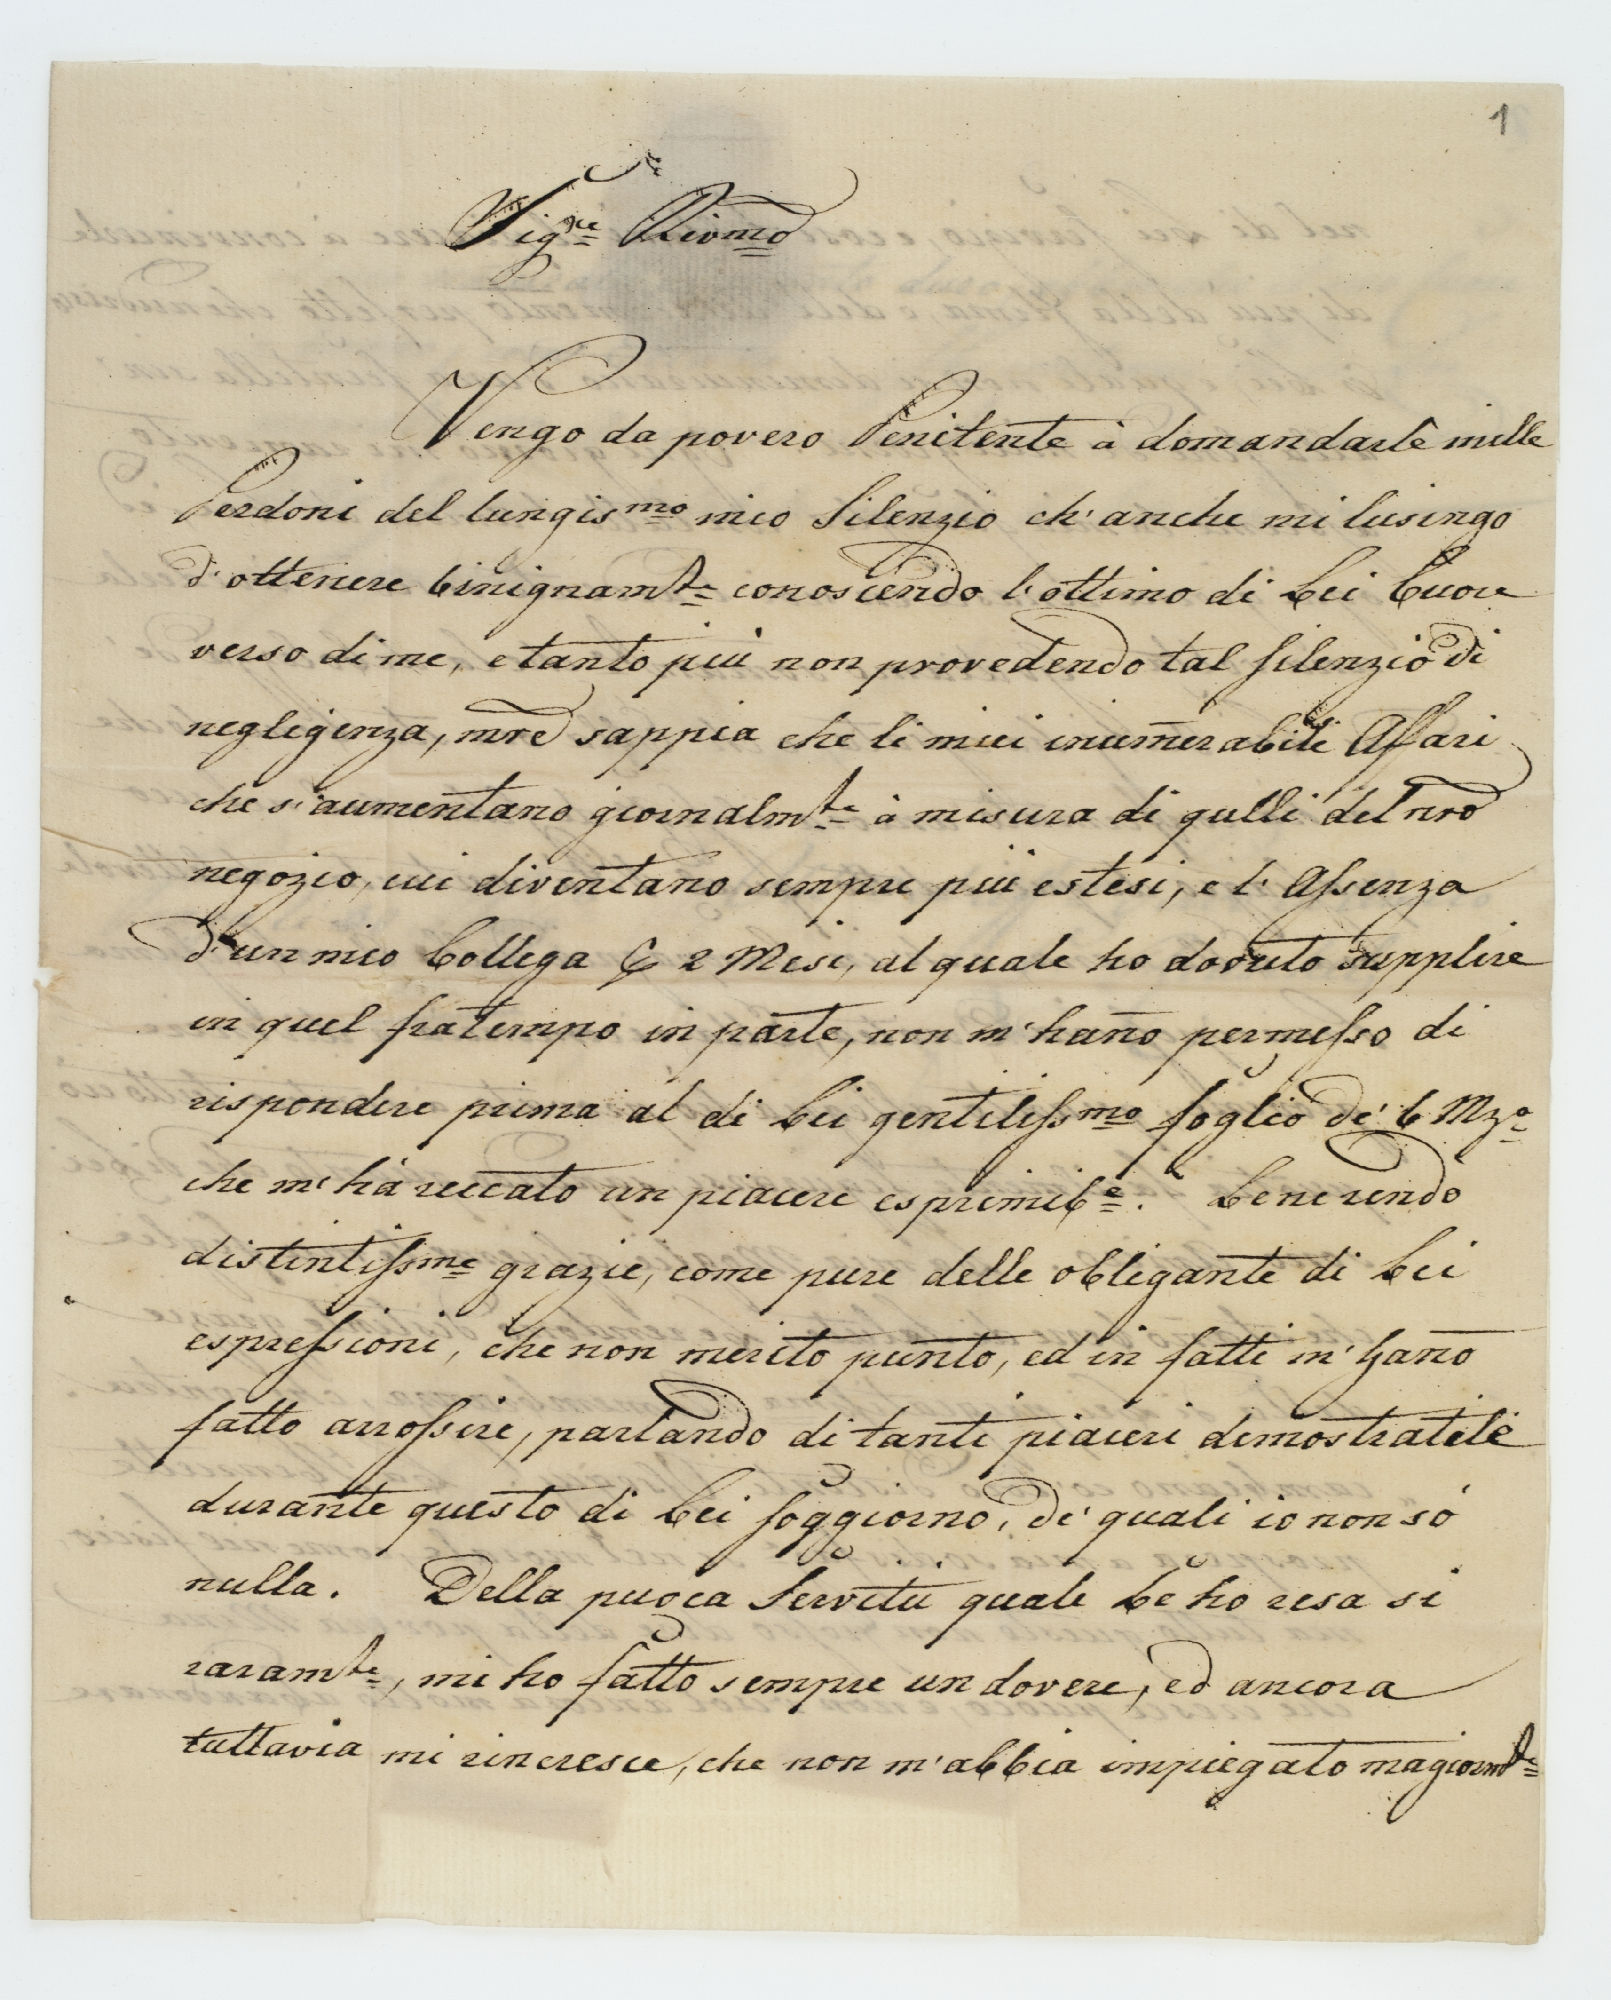 1
Sig.re Riv.mo
Vengo da povero Penitente à domandarle mille
Perdoni del lungis.mo mio Silenzio ch'anche mi lusingo
d'ottenere binignam.te conoscendo l'ottimo di Lei Cuore
verso di me, e tanto più non provedendo tal silenzio di
negligenza, mrê sappia che li miei inum̄erabili Affari
che s'aumentano giornalm.te à misura di q̄lli del nr̄o
negozio, cui diventano sempre più estesi, e l'Assenza
d'un mio Collega ꝑ 2 Mesi, al quale ho dovuto supplire
in quel fratempo in parte, non m'han̄o permesso di
rispondere prima al di Lei gentiliss.mo foglio de' 6 Mzo
che m'hà reccato un piacere esprimib.e. Le ne rendo
distintiss.me grazie, come pure delle obligante di Lei
espressioni, che non merito punto, ed in fatti m'han̄o
fatto arrossire, parlando di tanti piaceri dimostratile
durante questo di Lei soggiorno, de' quali io non sò
nulla. Della puoca Servitù quale Le ho resa si
raram.te, mi ho fatto sempre un dovere, ed ancora
tuttavia mi rincresce, che non m'abbia impiegato magiorm.te